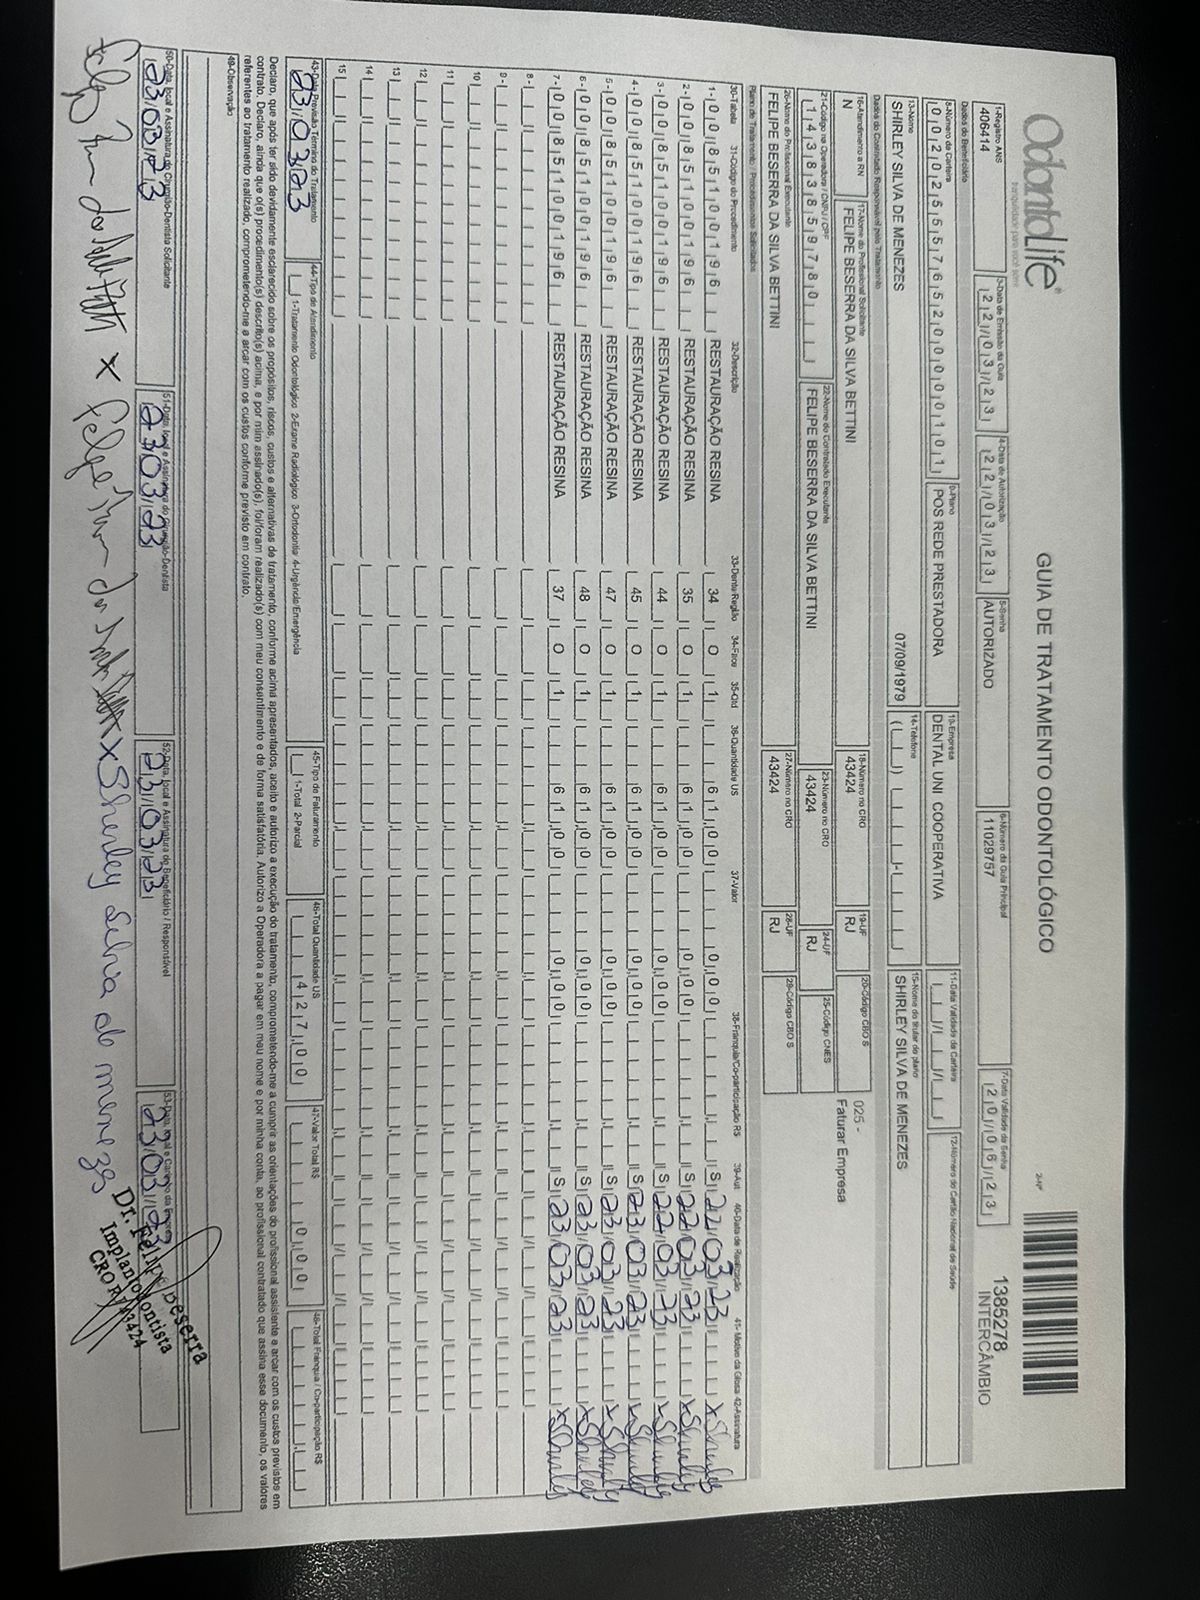 OdontoLife®
tranquilidade para você sorrir
GUIA DE TRATAMENTO ODONTOLÓGICO
2-Nº
1385278
INTERCÂMBIO
1-Registro ANS 3-Data de Emissão da Guia 4-Data de Autorização 5-Senha 6-Número da Guia Principal 7-Data Validade da Senha
406414 22/03/23 22/03/23 AUTORIZADO 11029757 20/06/23
Dados do Beneficiário
8-Número da Carteira 9-Plano 10-Empresa 11-Data Validade da Carteira 12-Número do Cartão Nacional de Saúde
00202555765200000101 POS REDE PRESTADORA DENTAL UNI COOPERATIVA
13-Nome 14-Telefone 15-Nome do titular do plano
SHIRLEY SILVA DE MENEZES 07/09/1979 SHIRLEY SILVA DE MENEZES
Dados do Contratado Responsável pelo Tratamento
16-Atendimento a RN 17-Nome do Profissional Solicitante 18-Número no CRO 19-UF 20-Código CBO S
N FELIPE BESERRA DA SILVA BETTINI 43424 RJ
025 -
Faturar Empresa
21-Código na Operadora / CNPJ / CPF 22-Nome do Contratado Executante 23-Número no CRO 24-UF 25-Código CNES
14383859780 FELIPE BESERRA DA SILVA BETTINI 43424 RJ
26-Nome do Profissional Executante 27-Número no CRO 28-UF 29-Código CBO S
FELIPE BESERRA DA SILVA BETTINI 43424 RJ
Plano de Tratamento / Procedimentos Solicitados
30-Tabela 31-Código do Procedimento 32-Descrição 33-Dente/Região 34-Face 35-Qtd 36-Quantidade US 37-Valor 38-Franquia/Co-participação R$ 39-Aut 40-Data de Realização 41-Motivo da Glosa 42-Assinatura
1- 00 85100196 RESTAURAÇÃO RESINA 34 O 1 61,00 0,00 S 22/03/23 x Shirley
2- 00 85100196 RESTAURAÇÃO RESINA 35 O 1 61,00 0,00 S 22/03/23 x Shirley
3- 00 85100196 RESTAURAÇÃO RESINA 44 O 1 61,00 0,00 S 22/03/23 x Shirley
4- 00 85100196 RESTAURAÇÃO RESINA 45 O 1 61,00 0,00 S 23/03/23 x Shirley
5- 00 85100196 RESTAURAÇÃO RESINA 47 O 1 61,00 0,00 S 23/03/23 x Shirley
6- 00 85100196 RESTAURAÇÃO RESINA 48 O 1 61,00 0,00 S 23/03/23 x Shirley
7- 00 85100196 RESTAURAÇÃO RESINA 37 O 1 61,00 0,00 S 23/03/23 x Shirley
8-
9-
10
11
12
13
14
15
43-Data Previsão Término do Tratamento 44-Tipo de Atendimento 45-Tipo de Faturamento 46-Total Quantidade US 47-Valor Total R$ 48-Total Franquia / Co-participação R$
23/03/23 1-Tratamento Odontológico 2-Exame Radiológico 3-Ortodontia 4-Urgência/Emergência 1-Total 2-Parcial 427,00 0,00
Declaro, que após ter sido devidamente esclarecido sobre os propósitos, riscos, custos e alternativas de tratamento, conforme acima apresentados, aceito e autorizo a execução do tratamento, comprometendo-me a cumprir as orientações do profissional assistente e arcar com os custos previstos em
contrato. Declaro, ainda que o(s) procedimento(s) descrito(s) acima, e por mim assinado(s), foi/foram realizado(s) com meu consentimento e de forma satisfatória. Autorizo a Operadora a pagar em meu nome e por minha conta, ao profissional contratado que assina esse documento, os valores
referentes ao tratamento realizado, comprometendo-me a arcar com os custos conforme previsto em contrato.
49-Observação
50-Data, local e Assinatura do Cirurgião-Dentista Solicitante 51-Data, local e Assinatura do Cirurgião-Dentista 52-Data, local e Assinatura do Beneficiário / Responsável 53-Data, local e Carimbo da Empresa
23/03/23 23/03/23 23/03/23 23/03/23
x x Sherley Silva de menezes
Beserra
Implantodontista